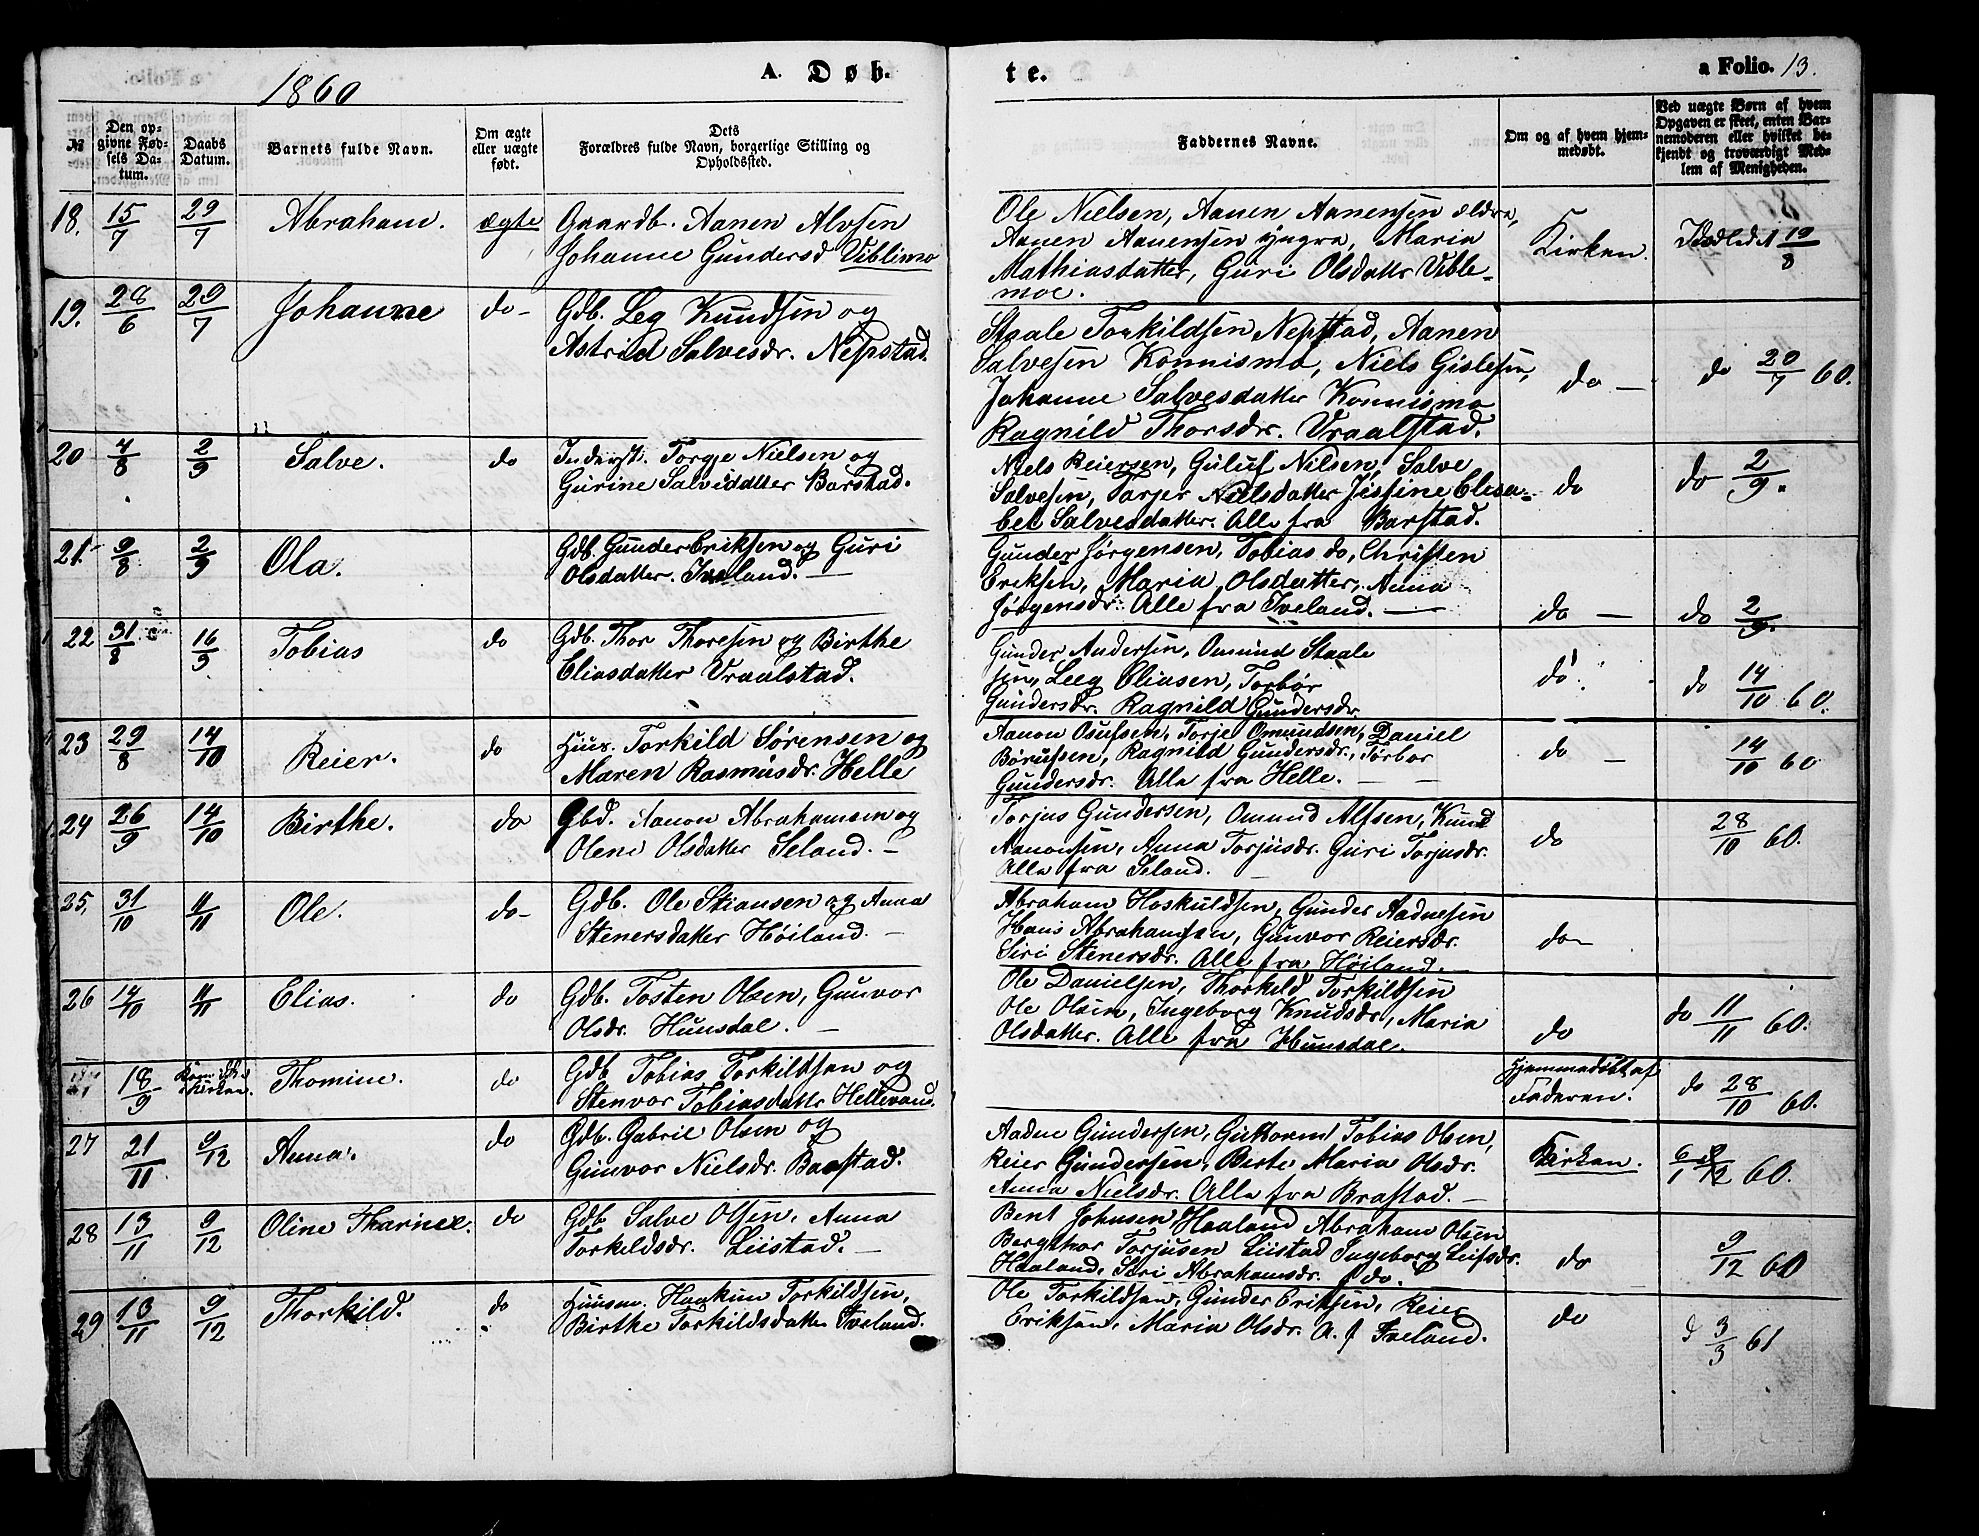 1860
A. Døb-
te.
a Folio. 13.
№
Den op-
givne Fød-
sels Da-
tum.
Daabs
Datum.
Barnets fulde Navn.
Om ægte
eller uægte
født.
Dets
Forældres fulde Navn, borgerlige Stilling og
Opholdssted.
Faddernes Navne.
Om og af hvem hjem-
medøbt.
Ved uægte Børn af hvem
Opgaven er skeet, enten Bar-
nemoderen eller hvilket be-
kjendt og troværdigt Med-
lem af Menigheden.
18. 15/7 29/7 Abraham. ægte
Gaardb. Aanen Alvsen
Johanne Gundersd Viblimo
Ole Nielsen, Aanen Aanensen ældre,
Aanen Aanensen yngre, Maria
Mathiasdatter, Guri Olsdatter Vible-
moe.
Kirken. 19/8
19. 28/6 29/7 Johanne do-
Gdb. Leg Knudsen og
Astrid Salvesdr. Nepstad.
Staale Torkildsen Nepstad, Aanen
Salvesen Konnismo, Niels Gislesen,
Johanne Salvesdatter Konnismo
Ragnild Thorsdr. Vraalstad.
do - do 20/7 60.
20 4/8 2/9 Salve. do
Inderst. Torge Nielsen og
Gurine Salvesdatter Barstad.
Niels Reiersen, Guluf Nilsen, Salve
Salvesen, Torjer Nielsdatter Jesfine Elisa-
bet Salvesdatter. Alle fra Barstad.
do do 2/9.
21. 9/8 2/9 Ola.
Gdb. Gunder Eriksen og Guri
Olsdatter. Iveland. -
Gunder Jørgensen, Tobias do, Christen
Eriksen, Maria Olsdatter, Anna
Jørgensdr. Alle fra Iveland. -
do - do 2/9.
22 31/8 16/9 Tobias do
Gdb. Thor Thoresen og Birthe
Eliasdatter Vraalstad.
Gunder Andersen, Omund Staale
sen, Leeg Eliasen, Torbør
Gundersdr. Ragnild Gundersdr.
do do 14/10 60.
23 29/8 14/10 Reier. do
Huus. Torkild Sørensen og
Maren Rasmusdr. Helle
Aanon Osufsen, Torje Omundsen, Daniel
Børufsen, Ragnild Gundersdr, Torbor
Gundersdr. Alle fra Helle. -
do - 14/10 60
24 26/9 14/10 Birthe. do
Gbd. Aanon Abrahamsen og
Olene Olsdatter Seland. -
Torjus Gundersen, Omund Alfsen, Knud
Aanonsen, Anna Torjusdr. Guri Torjusdr.
Alle fra Seland. -
do 28/10 60.
25. 31/10 11/11 Ole. do-
Gdb. Ole Stiansen og Anna
Stenersdatter Høiland. -
Abraham Hoskuldsen, Gunder Aadnesen
Hans Abrahamsen, Gunvor Reiersdr.
Siri Stenersdr. Alle fra Høiland. -
do-
26 14/10 11/11 Elias. do
Gdb. Tosten Olsen, Gunvor
Olsdr. Hunsdal. -
Ole Danielsen, Thorkild Torkildsen
Ole Olsen, Ingeborg Knudsdr, Maria
Olsdatter. Alle fra Hunsdal.
do do 11/11 60.
18/9 Kirken. Thomine. do
Gdb Tobias Torkildsen og
Stenvor Tobiasdatter Hellevans.
Hjemmedøbt af
Faderen. do 28/10 60.
27 21/11 9/12 Anna. do
Gdb. Gabriel Olsen og
Gunvor Nielsdr. Baastad.
Aadne Gundersen, Guttorm Tobias Olsen,
Reier Gundersen, Berte Maria Olsdr.
Anna Nielsdr. Alle fra Brastad. -
Kirken. 60.
28 13/11 9/12 Oline Tharine. do
Gdb Salve Olsen, Anna
Torkildsdr. Liistad. -
Bent Johnsen Haaland Abraham Olsen
Bergthor Torjusen Liistad Ingeborg Leifsdr.
Haaland, Siri Abrahamsdr. f do.
do 9/12 60
29 10/11 9/12 Thorkild. do
Huusm. Haakun Torkildsen,
Birthe Torkildsdatter Iveland.
Ole Torkildsen, Gunder Eriksen, Reier
Eriksen, Maria Olsdr. A. f Iveland.
do d 3/3 61